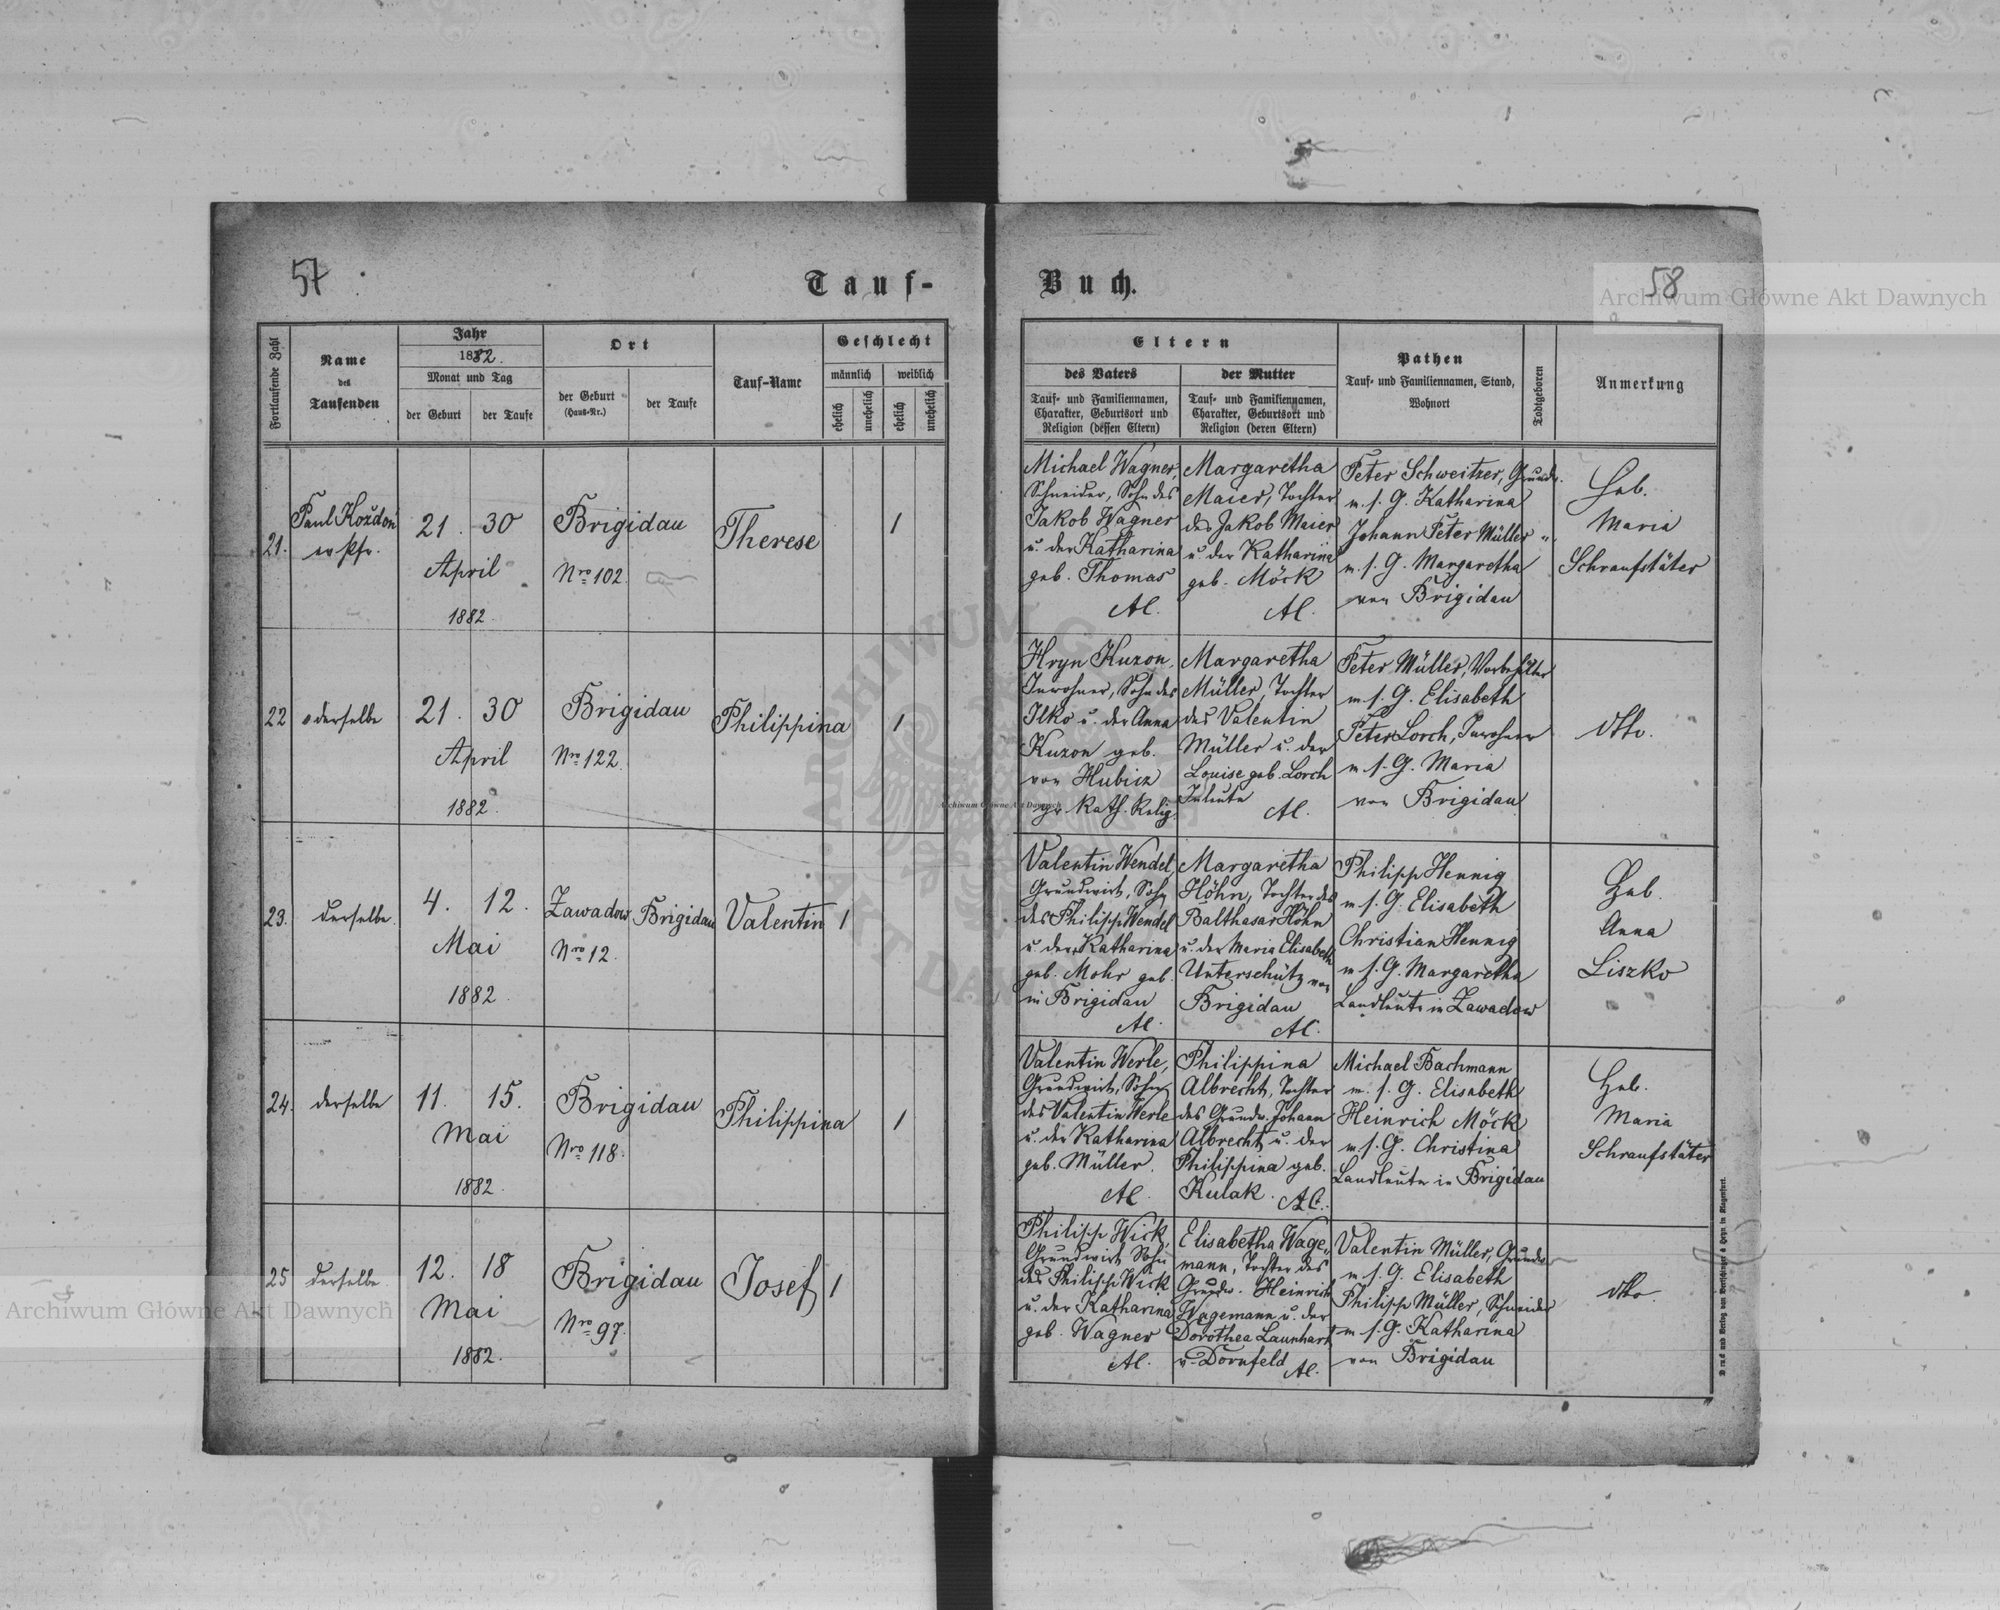 57
Tauf-
Fortlaufende Zahl
Name
des
Taufenden
Jahr
1882.
Monat und Tag
der Geburt
der Taufe
Ort
der Geburt
(Haus-Nr.)
der Taufe
Tauf-Name
Geschlecht
männlich
weiblich
ehelich
unehelich
ehelich
unehelich
21.
Paul Kozdoń
ev. Pfr.
21. 30
April
1882.
Brigidau
Nro 102.
Therese
1
22
derselbe
21. 30
April
1882.
Brigidau
Nro 122.
Philippina
1
23.
derselbe.
4. 12.
Mai
1882.
Zawadow
Nro 12.
Brigidau
Valentin
1
24.
derselbe
11. 15.
Mai
1882.
Brigidau
Nro 118.
Philippina
1
25
derselbe.
12. 18
Mai
1882.
Brigidau
Nro 97.
Josef
1
Buch.
58
Archiwum Główne Akt Dawnych
Eltern
des Vaters
Tauf- und Familiennamen,
Charakter, Geburtsort und
Religion (dessen Eltern)
der Mutter
Tauf- und Familiennamen,
Charakter, Geburtsort und
Religion (deren Eltern)
Pathen
Tauf- und Familiennamen, Stand,
Wohnort
Todtgeboren
Anmerkung
Michael Wagner,
Schneider, Sohn des
Jakob Wagner
u. der Katharina
geb. Thomas
AC.
Margaretha
Maier, Tochter
des Jakob Maier
u. der Katharina
geb. Möck
AC.
Peter Schweitzer, Grundw.
m. s. G. Katharina
Johann Peter Müller "
m. s. G. Margaretha
von Brigidau
Heb.
Maria
Schraufstäter
Hryn Kuzon,
Inwohner, Sohn des
Ilko u. der Anna
Kuzon geb.
von Hubicz
gr. Kath. Relig.
Margaretha
Müller, Tochter
des Valentin
Müller u. der
Louise geb. Lorch
Inleute
AC.
Peter Müller, Vorbehälter
m s. G. Elisabeth
Peter Lorch, Inwohner
m. s. G. Maria
von Brigidau
dtto.
Valentin Wendel,
Grundwirt, Sohn
des Philipp Wendel
u. der Katharina
geb. Mohr geb.
in Brigidau
AC.
Margaretha
Höhn, Tochter des
Balthasar Höhn
u. der Maria Elisabeth
Unterschütz von
Brigidau
AC.
Philipp Hennig
m. s. G. Elisabeth
Christian Hennig
m s. G. Margaretha
Landleute in Zawadow
Heb.
Anna
Liszko
Valentin Werle,
Grundwirt, Sohn
des Valentin Werle
u. der Katharina
geb. Müller.
AC.
Philippina
Albrecht, Tochter
des Grundw. Johann
Albrecht u. der
Philippina geb.
Kulak.
AC.
Michael Bachmann
m. s. G. Elisabeth
Heinrich Möck
m s. G. Christina
Landleute in Brigidau
Heb.
Maria
Schraufstäter
Philipp Wick,
Grundwirt Sohn
des Philipp Wick
u. der Katharina
geb. Wagner
AC.
Elisabetha Wage-
mann, Tochter des
Grundw. Heinrich
Wagemann u. der
Dorothea Launhart
v. Dornfeld
AC.
Valentin Müller, Grundw.
m s. G. Elisabeth
Philipp Müller, Schneider
m s. G. Katharina
von Brigidau
dtto.
Archiwum Główne Akt Dawnych
Archiwum Główne Akt Dawnych